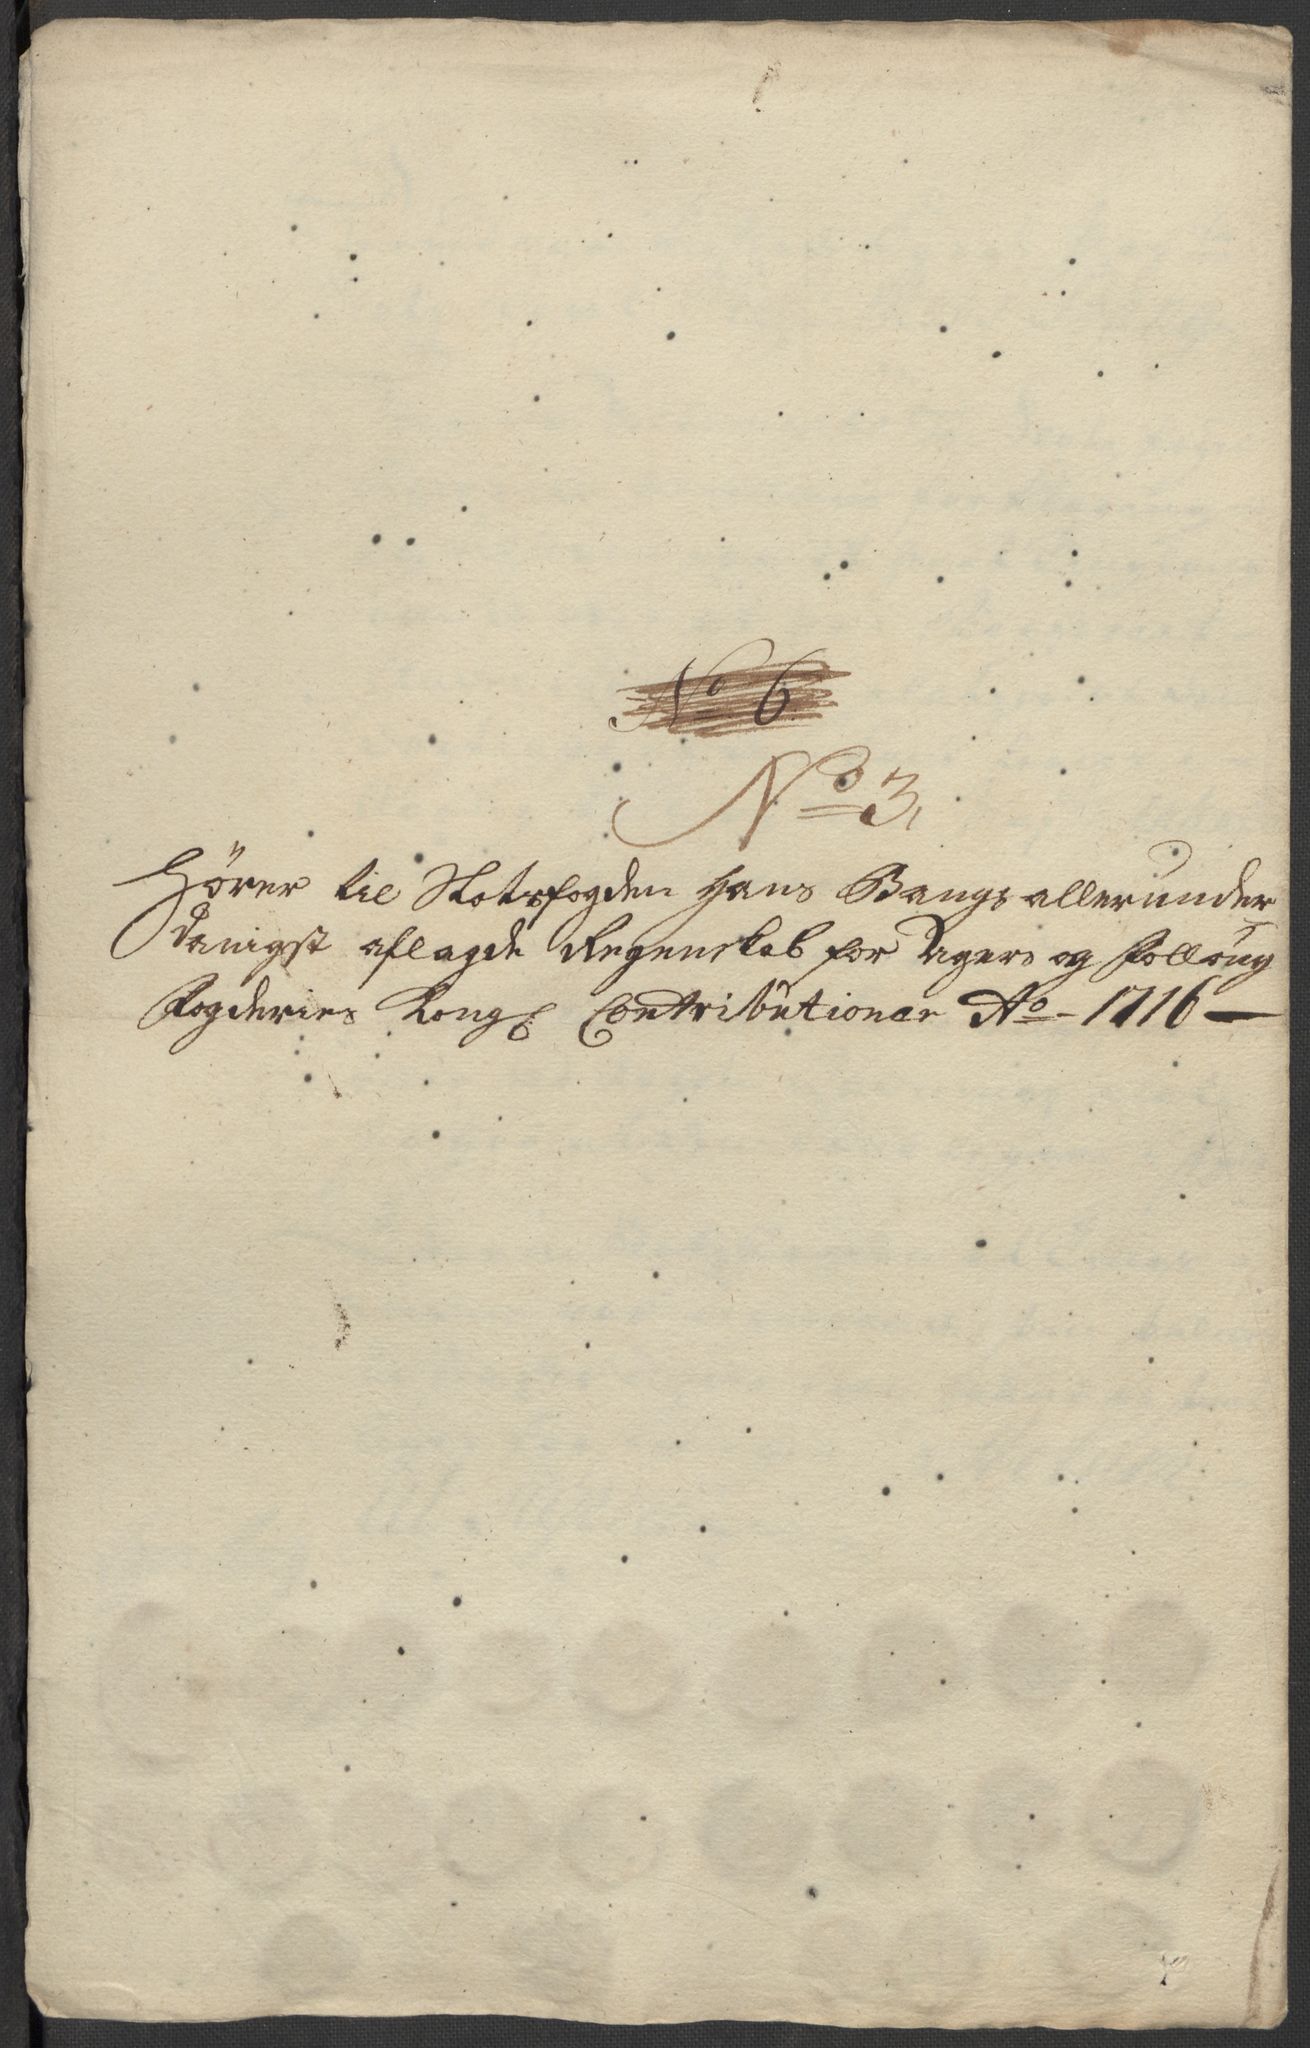 No 6
No 3,
Hører til Slotsfogden Hans Bangs allerunder
danigst aflagde Regenskab for Agers og Folloug
Fogderies Kongl Contributioner Ao - 1716 —